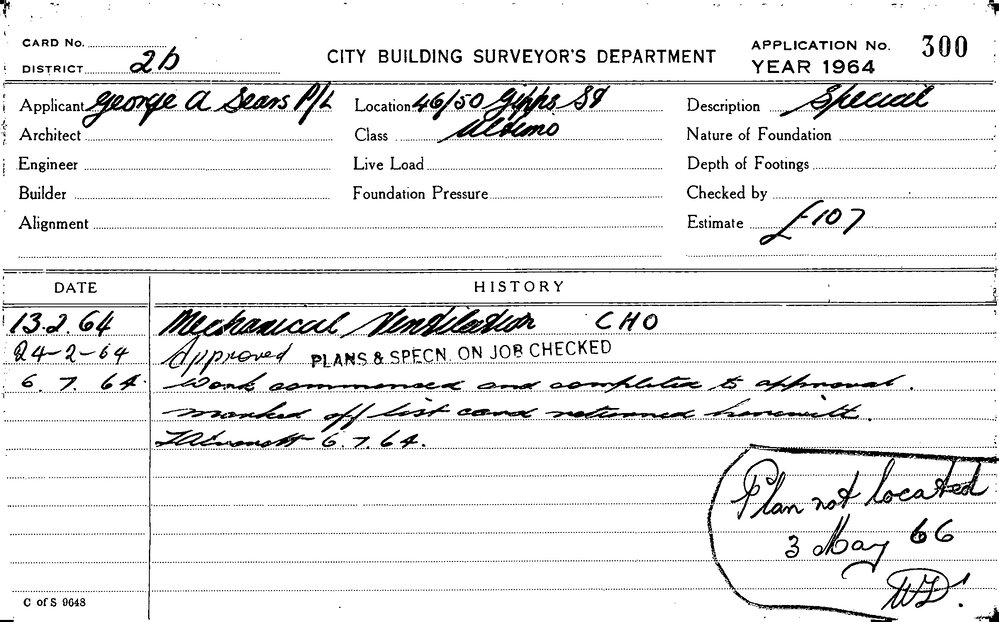 CARD No.
DISTRICT 2b
CITY BUILDING SURVEYOR'S DEPARTMENT
APPLICATION No. 300
YEAR 1964
Applicant George A Sears P/L
Location 46/50 Gipps St
Description Special
Architect
Class Ultimo
Nature of Foundation
Engineer
Live Load
Depth of Footings
Builder
Foundation Pressure
Checked by
Alignment
Estimate £107
DATE HISTORY
13.2.64 Mechanical Ventilation CHO
24-2-64 Approved PLANS & SPECN. ON JOB CHECKED
6.7.64. Work commenced and completed to approval.
marked off list card returned herewith.
6.7.64.
Plan not located
3 May 66
C of S 9648